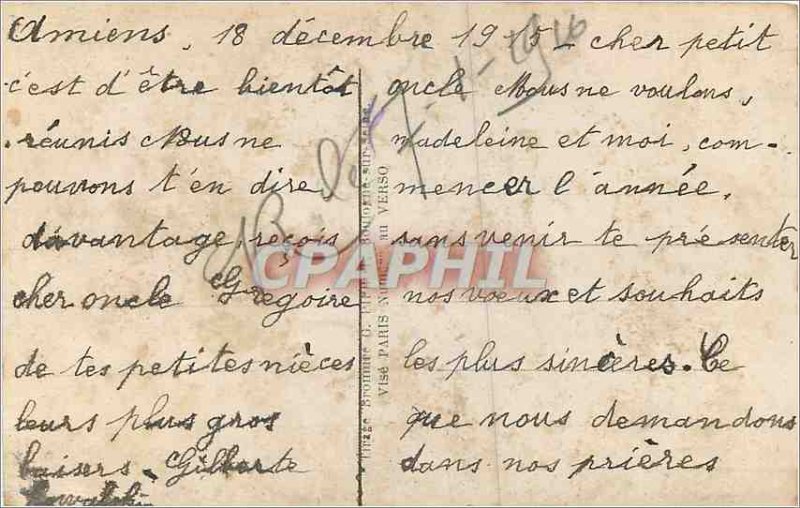 Amiens, 18 décembre 1915 - cher petit
oncle Nous ne voulons,
madeleine et moi, com-
mencer l'année,
sans venir te présenter
nos vœux et souhaits
les plus sincères. Ce
que nous demandons
dans nos prières
c'est d'être bientôt
réunis Nous ne
pouvons t'en dire
davantage, reçois
cher oncle Grégoire
de tes petites nièces
leurs plus gros
baisers. Gilberte
Visé PARIS au VERSO
CPAPHIL